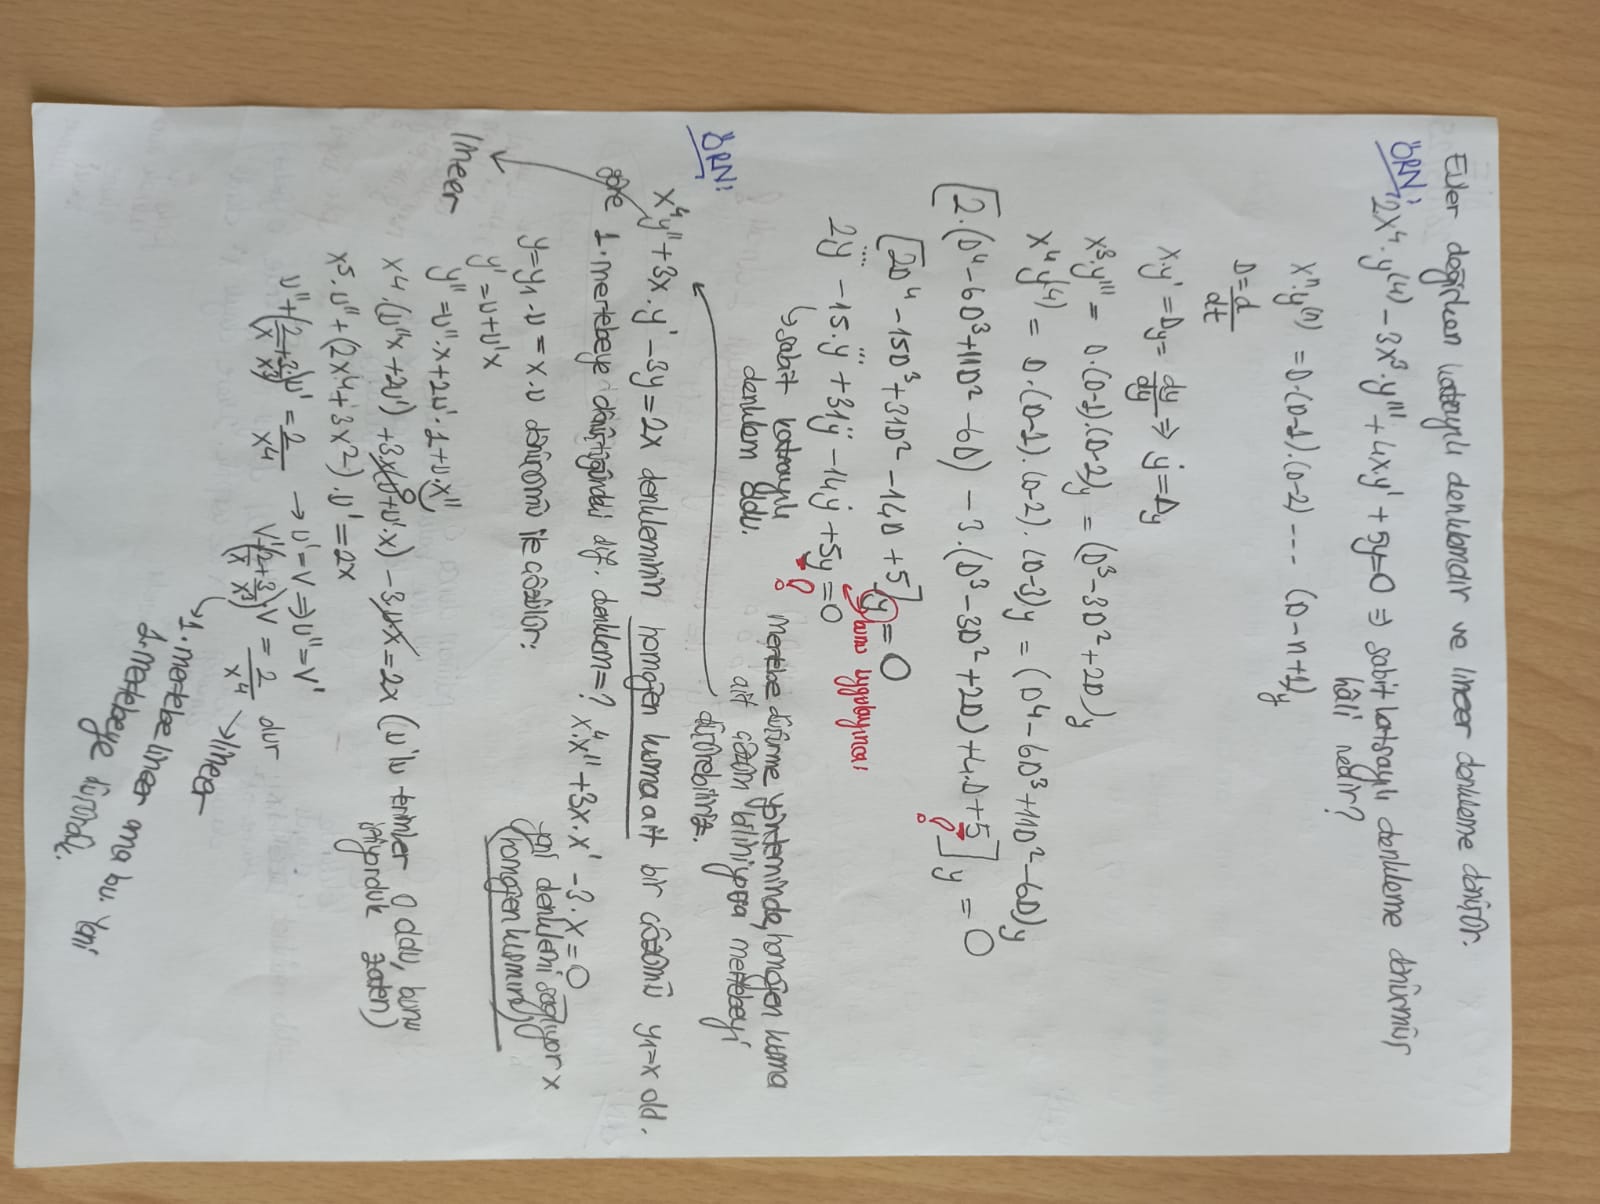 Euler değişken katsayılı denklemdir ve lineer denkleme dönüşür.
ÖRN: 2x⁴.y⁽⁴⁾ - 3x³.y''' + 4x.y' + 5y=0 ⇒ sabit katsayılı denkleme dönüşmüş
hâli nedir?
xⁿ.y⁽ⁿ⁾ = D.(D-1).(D-2) --- (D-n+1)y
D = d/dt
x.y' = Dy = dy/dy ⇒ ẏ = Dy
x³.y''' = D.(D-1).(D-2)y = (D³-3D²+2D)y
x⁴y⁽⁴⁾ = D.(D-1).(D-2).(D-3)y = (D⁴-6D³+11D²-6D)y
[2.(D⁴-6D³+11D²-6D) - 3.(D³-3D²+2D) + 4.D+5]y = 0
[2D⁴-15D³+31D²-14D+5]y = 0
bunu uygulayınca
2y⃜ - 15.y⃛ + 31ÿ - 14ẏ + 5y = 0
↳ sabit katsayılı
denklem oldu.
Mertebe düşürme yönteminde, homojen kısma
ait çözüm biliniyorsa mertebeyi
düşürebiliriz.
ÖRN:
x⁴y'' + 3x.y' - 3y = 2x denkleminin homojen kısma ait bir çözümü y₁=x old.
göre 1.mertebeye dönüştüğündeki dif. denklem=?
x⁴.x'' + 3x.x' - 3.x = 0
yani denklemi sağlıyor x
(homojen kısmını)
y=y₁.u = x.u dönüşümü ile çözülür:
y' = u+u'x
lineer
y'' = u''.x+2u'.1+u.x''
0
x⁴.(u''x+2u') + 3x(u+u'.x) - 3.u.x = 2x (u'lu terimler 0 oldu, bunu
istiyorduk zaten)
x⁵.u'' + (2x⁴+3x²).u' = 2x
u''+(2/x + 3/x³)u' = 2/x⁴ → u'=V ⇒ u''=V'
V'+(2/x + 3/x³).V = 2/x⁴ dur
→ lineer
↳ 1. mertebe lineer ama bu. Yani
1.mertebeye düşürdük.